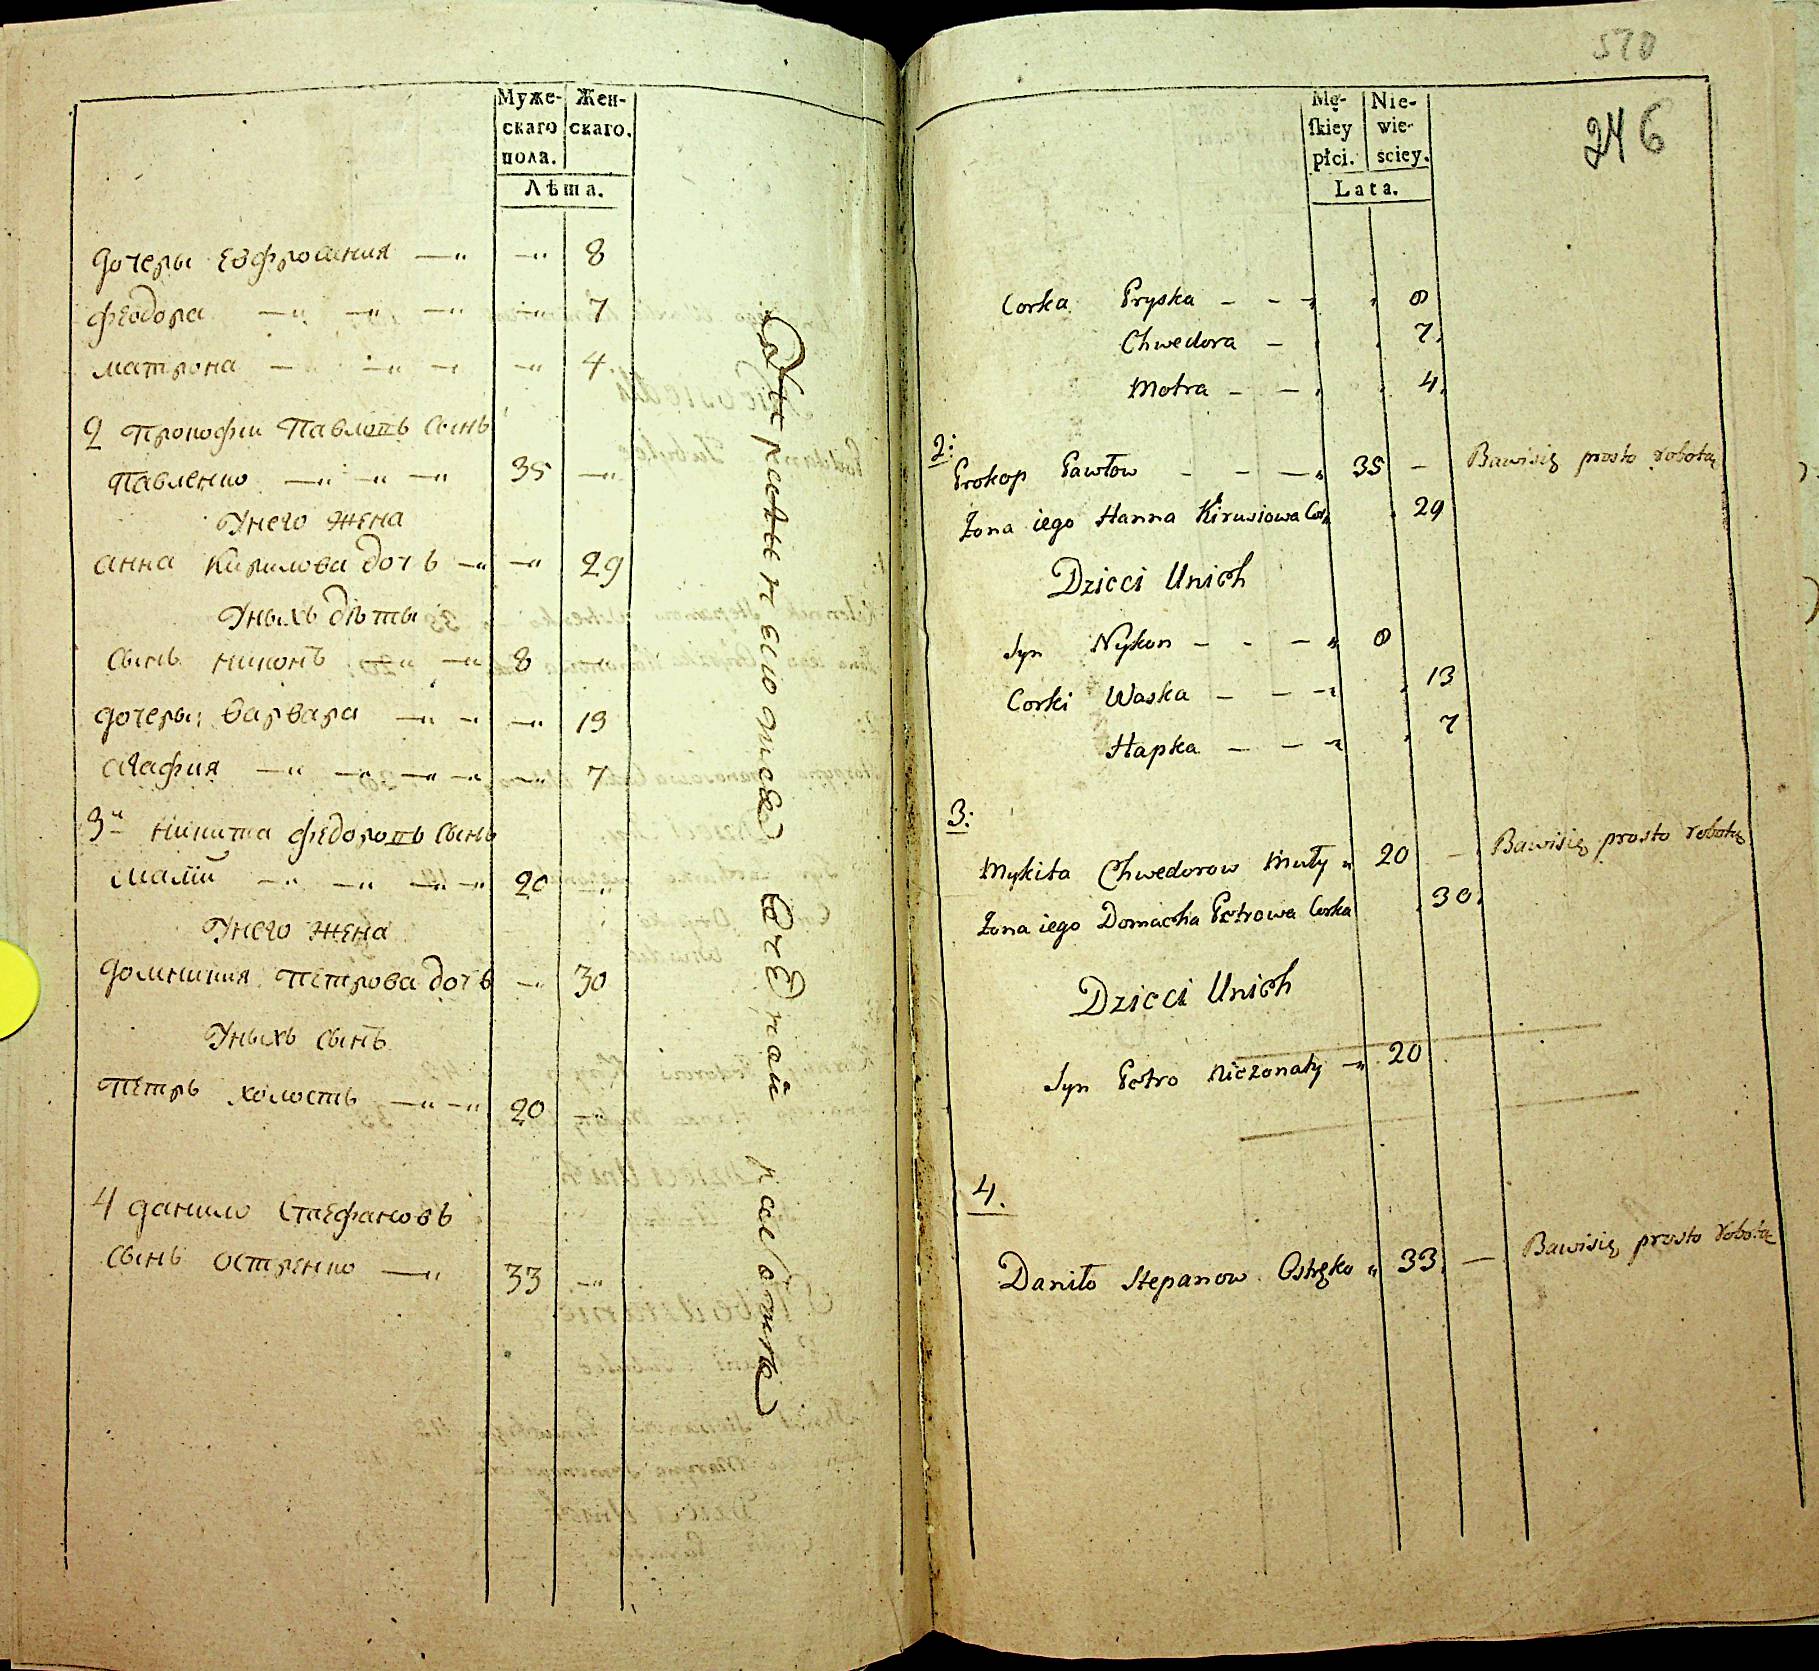 Муже-
скаго
пола.
Жен-
скаго.
Лѣта.
дочеры Евфросиния 8
Феодора 7
матрона 4
2 прокофии Павловъ сынъ
Павленко 35
У него жена
анна Кирилова дочь 29
У ныхъ дѣты
сынъ никонъ 8
дочеры варвара 13
агафия 7
3й никита федоровъ сынъ
малий 20
У него жена
домникия петрова дочь 30
У ныхъ сынъ
петръ холостъ 20
4 данило Стефановъ
сынъ остренко 33
работою
570
246
Mę-
ſkiey
płci.
Nie-
wie-
sciey.
Lata.
Corka Pryska 8
Chwedora 7
Motra 4
2:
Prokop Pawłow 35 Bawisię prosto robotą
Żona iego Hanna Kirusiowa Cor 29
Dzieci Unich
Syn Nykon 8
Corki Waska 13
Hapka 7
3:
Mykita Chwedorow Mały 20 Bawisię prosto robotą
Żona iego Domacha Petrowa Corka 30
Dzieci Unich
Syn Petro Nieżonaty 20
4.
Daniło Stepanow Ostręko 33 Bawisię prosto robotą